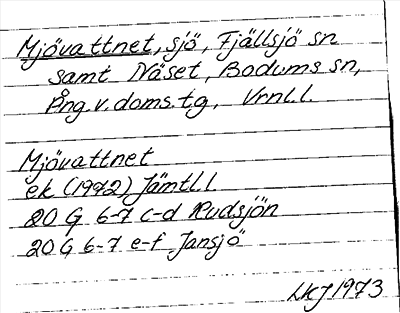 Mjövattnet, sjö, Fjällsjö sn
samt Näset, Bodums sn,
Ång.v.doms.tg, Vrnl.l.
Mjövattnet
ek (1972) Jämtl.l
20 G 6-7 c-d Rudsjön
20 G 6-7 e-f Jansjö
LKJ 1973